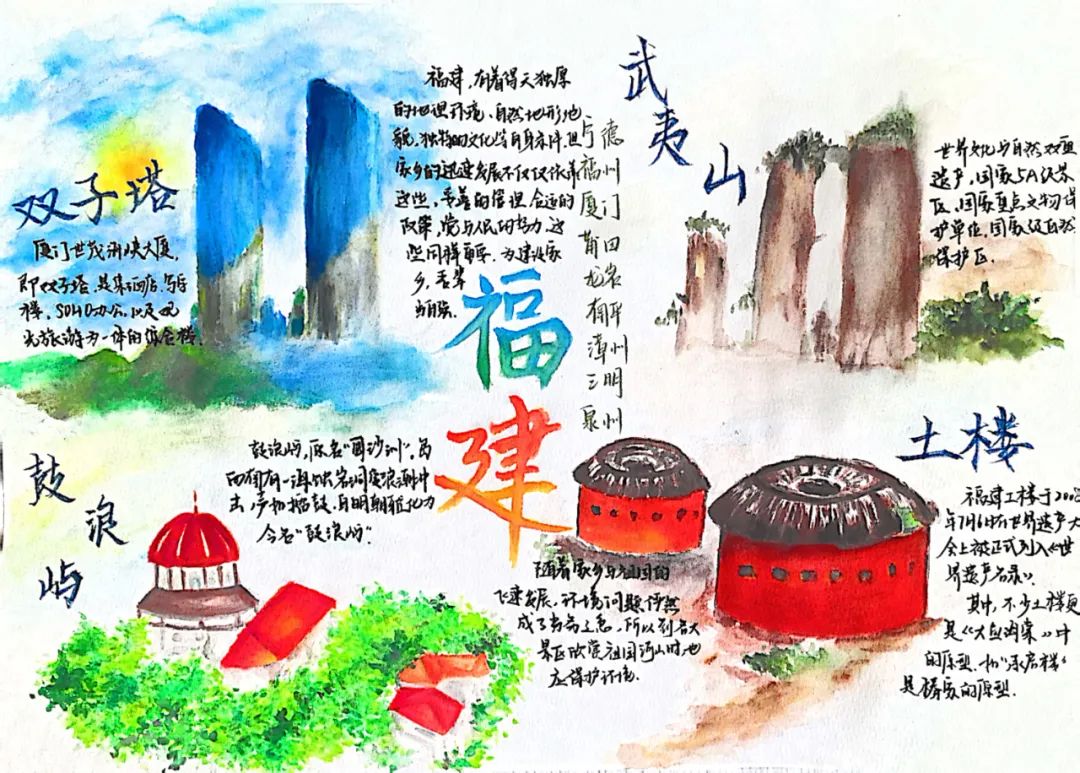 双子塔
厦门世茂海峡大厦,
即双子塔,是集酒店、写字
楼、SOHO办公,以及观
光旅游为一体的综合楼.
福建,有着得天独厚
的地理环境、自然地形地
貌,独特的文化与自身条件,但
家乡的迅速发展不仅仅依靠
这些,
的偿
合适的
政策,党与人民的努力,这
些同样重要.为建设家
乡,吾辈
当自强.
福建
宁德
福州
厦门
莆田
龙岩
南平
漳州
三明
泉州
武夷山
世界文化与自然双重
遗产,国家5A级景
区,国家重点文物保
护单位,国家级自然
保护区.
鼓浪屿
鼓浪屿,原名“圆沙洲”,岛
西南有一海蚀岩洞受浪潮冲
击,声如擂鼓,自明朝雅化为
今名“鼓浪屿”.
土楼
福建土楼于2008
年7月6日在世界遗产大
会上被正式列入《世
界遗产名录》.
其中,不少土楼更
是《大鱼海棠》中
的原型.如“承启楼”
是
的原型.
随着家乡与祖国的
飞速发展,环境问题俨然
成了当前之急,所以到各大
景区欣赏祖国河山时,也
应保护环境.